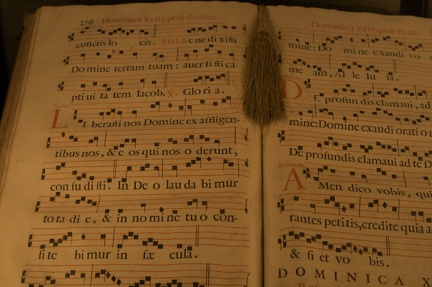 276 Dominica xxiij. post Pentec.
cunctis lo cis. Ps. 84. Be ne dixisti
Domine terram tuam: avertisti ca
ptivi ta tem Iacob. ℣. Glo ri a.
LI berasti nos Domine ex affligen-
tibus nos, & e os qui nos o derunt,
confu di sti. In De o lau da bi mur
to ta di e, & in no mi ne tu o con-
fi te bi mur in sæ cula.
Dominica xxiij. post Pent.
mine: Do mi ne exaudi vo
me am, al le lu ia.
DE profundis clamavi, ad
mine: Domine exaudi orati o
De profundis clamavi ad te D
AMen dico vobis, qui
rantes petitis, credite quia a
& fi et vo bis.
DOMINICA X